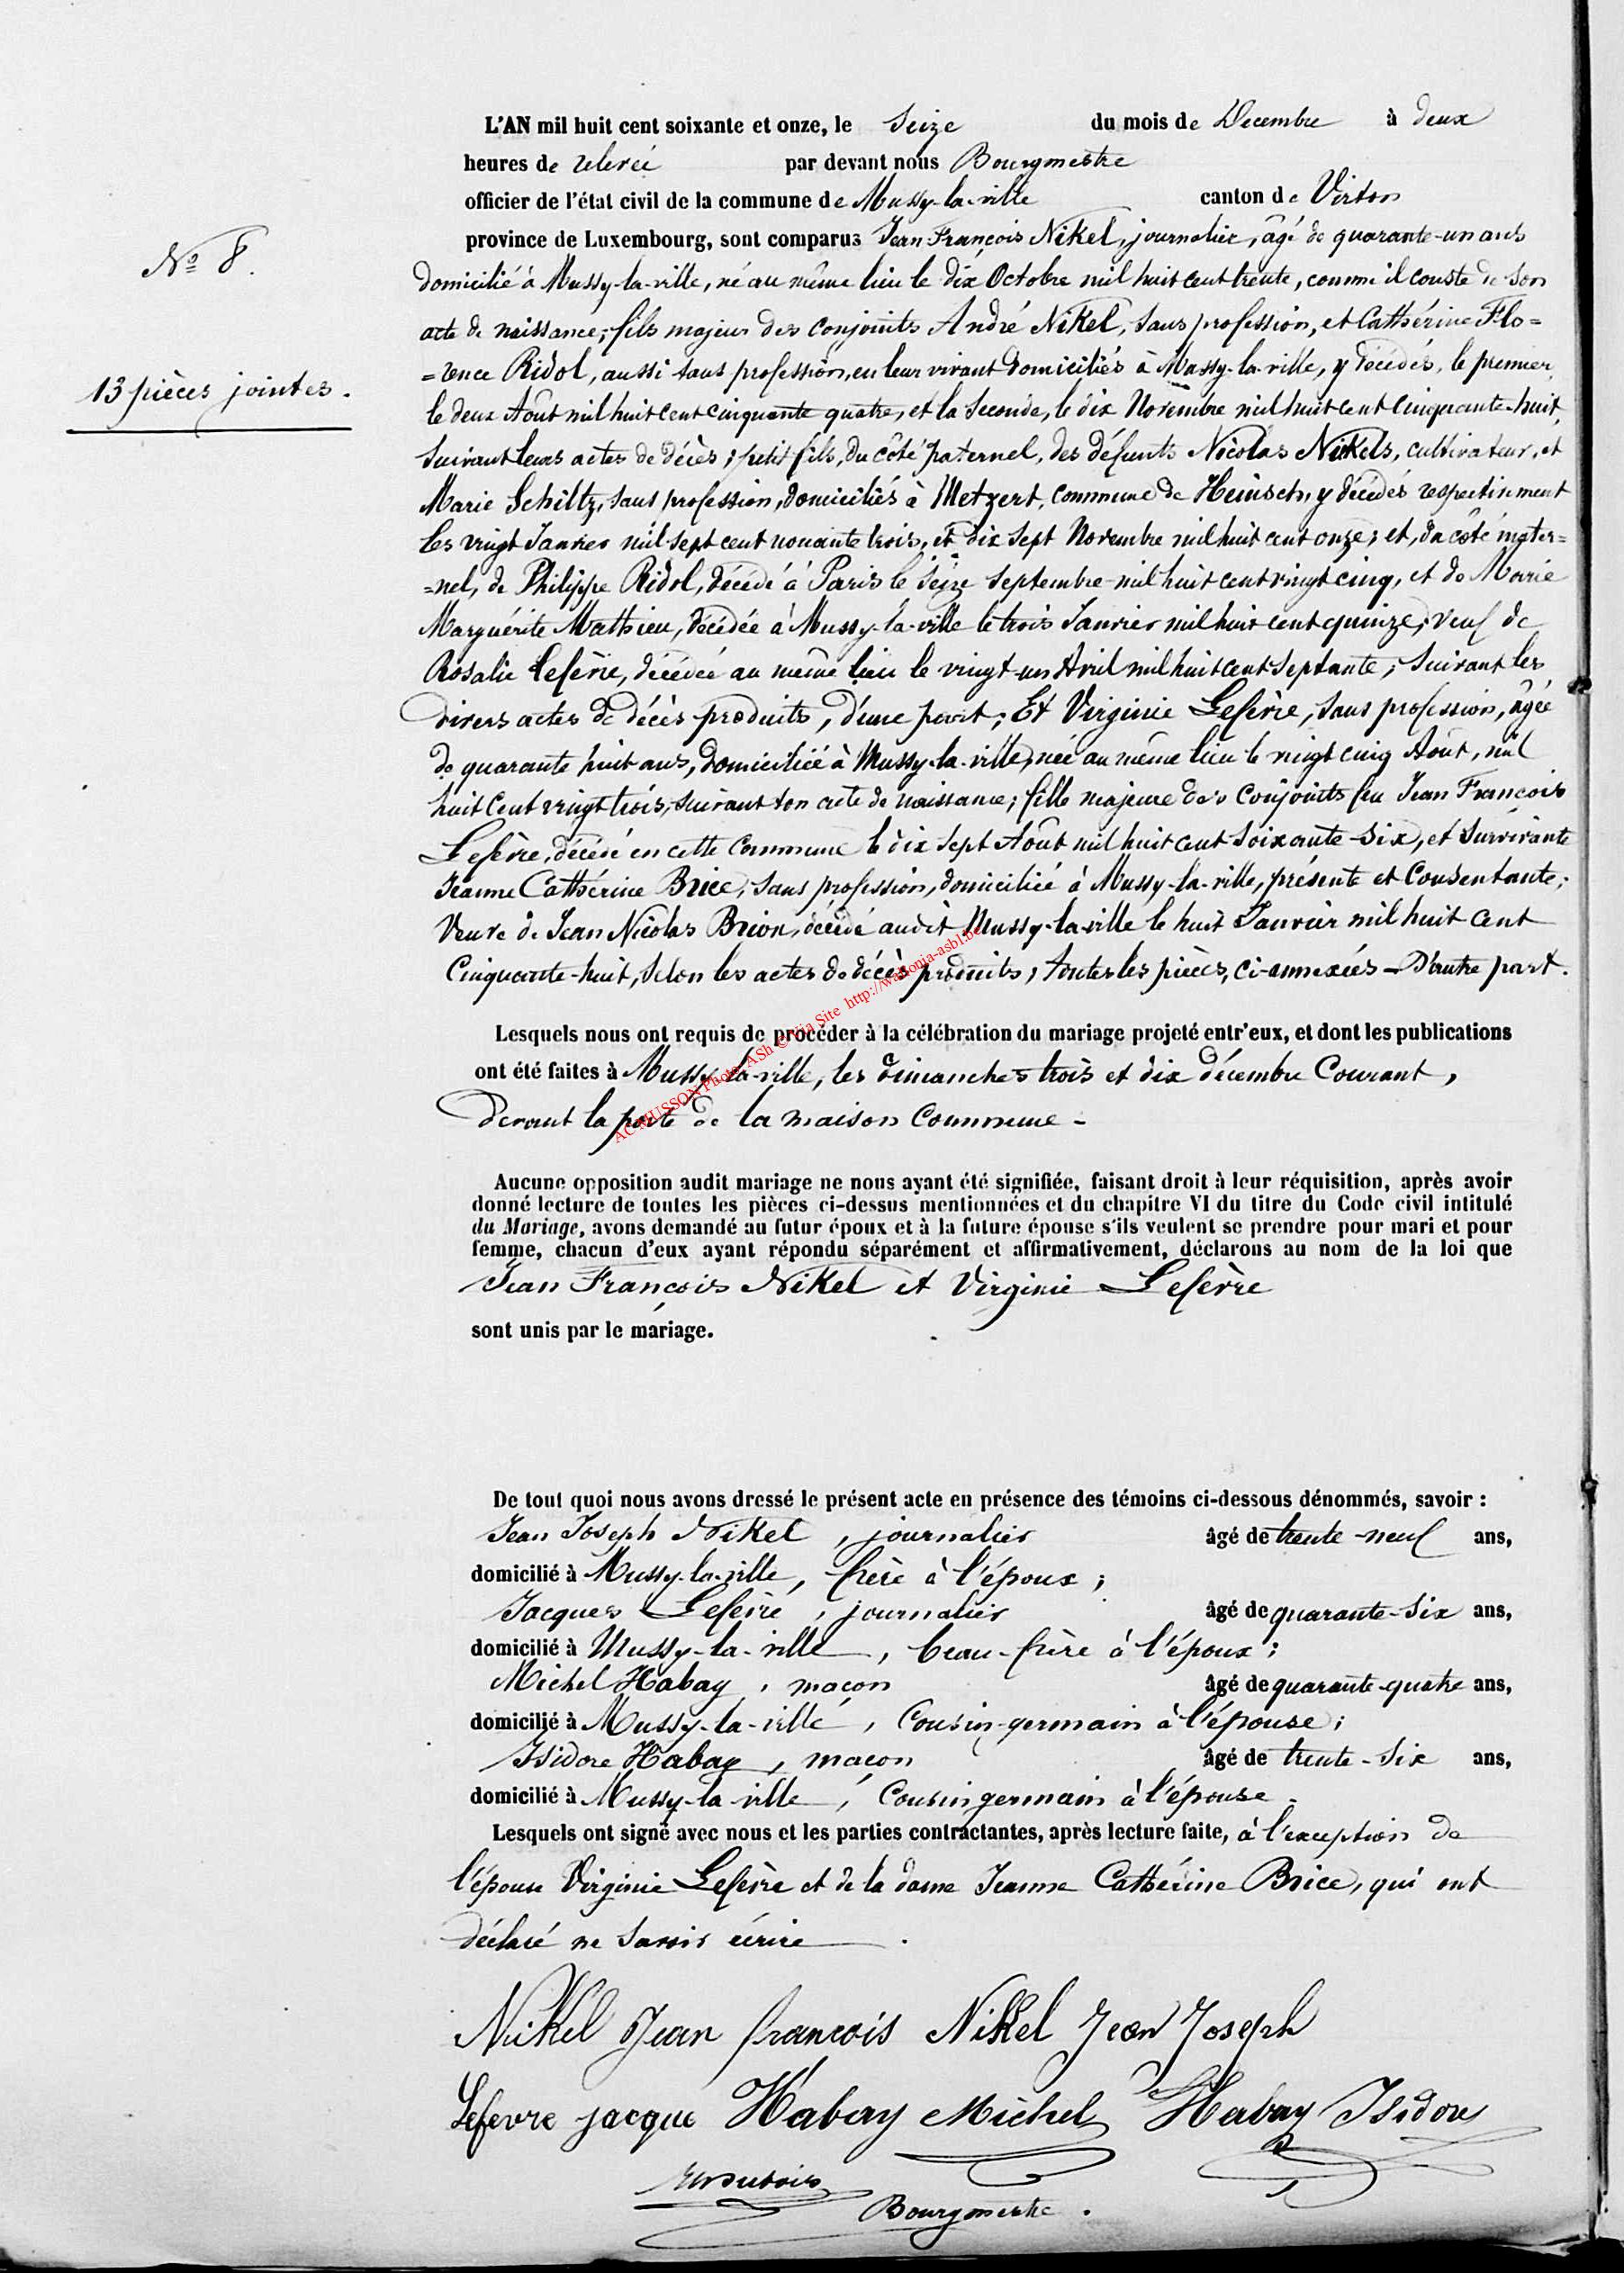 L'AN mil huit cent soixante et onze, le Seize du mois de Décembre à deux
heures de relevée par devant nous Bourgmestre
officier de l'état civil de la commune de Mussy-la-ville canton de Virton
province de Luxembourg, sont comparus Jean François Nikel, journalier, âgé de quarante-un ans
N° 8.
domicilié à Mussy-la-ville, né au même lieu le dix Octobre mil huit cent trente, comme il conste de son
acte de naissance; fils majeur des conjoints André Nikel, sans profession, et Cathérine Flo=
=rence Ridol, aussi sans profession, en leur vivant domiciliés à Mussy-la-ville, y décédés, le premier,
13 pièces jointes.
le deux Août mil huit cent cinquante quatre, et la seconde, le dix Novembre mil huit cent cinquante-huit,
suivant leurs actes de décès; petit fils, du côté paternel, des défunts Nicolas Nikels, cultivateur, et
Marie Schiltz, sans profession, domiciliés à Metzert, commune de Heinsch, y décédés respectivement
les vingt Janvier mil sept cent nonante trois, et dix sept Novembre mil huit cent onze; et, du côté mater=
=nel, de Philippe Ridol, décédé à Paris le seize Septembre mil huit cent vingt cinq, et de Marie
Marguérite Mathieu, décédée à Mussy-la-ville le trois Janvier mil huit cent quinze; veuf de
Rosalie Lefèvre, décédée au même lieu le vingt-un Avril mil huit cent septante; suivant les
divers actes de décès produits, d'une part; Et Virginie Lefèvre, sans profession, âgée
de quarante huit ans, domiciliée à Mussy-la-ville, née au même lieu le vingt cinq Août, mil
huit cent vingt trois, suivant son acte de naissance; fille majeure des conjoints feu Jean François
Lefèvre, décédé en cette commune le dix sept Août mil huit cent soixante-six, et survivante
Jeanne Cathérine Brice, sans profession, domiciliée à Mussy-la-ville, présente et consentante;
Veuve de Jean Nicolas Brion, décédé audit Mussy-la-ville le huit Janvier mil huit cent
Cinquante-huit, selon les actes de décès produits; toutes les pièces, ci-annexées - D'autre part.
Lesquels nous ont requis de procéder à la célébration du mariage projeté entr'eux, et dont les publications
ont été faites à Mussy-la-ville, les dimanches trois et dix décembre Courant,
devant la porte de la maison Commune -
AC MUSSON Photo ASh © Via Site http://wallonia-asbl.be
Aucune opposition audit mariage ne nous ayant été signifiée, faisant droit à leur réquisition, après avoir
donné lecture de toutes les pièces ci-dessus mentionnées et du chapitre VI du titre du Code civil intitulé
du Mariage, avons demandé au futur époux et à la future épouse s'ils veulent se prendre pour mari et pour
femme, chacun d'eux ayant répondu séparément et affirmativement, déclarons au nom de la loi que
Jean François Nikel et Virginie Lefèvre
sont unis par le mariage.
De tout quoi nous avons dressé le présent acte en présence des témoins ci-dessous dénommés, savoir :
Jean Joseph Nikel, journalier âgé de trente-neuf ans,
domicilié à Mussy-la-ville, frère à l'époux;
Jacques Lefèvre, journalier âgé de quarante-six ans,
domicilié à Mussy-la-ville, beau-frère à l'époux;
Michel Habay, maçon âgé de quarante-quatre ans,
domicilié à Mussy-la-ville, Cousin-germain à l'épouse;
Isidore Habay, maçon âgé de trente-six ans,
domicilié à Mussy-la-ville, Cousin germain à l'épouse.
Lesquels ont signé avec nous et les parties contractantes, après lecture faite, à l'exception de
l'épouse Virginie Lefèvre et de la dame Jeanne Cathérine Brice, qui ont
déclaré ne savoir écrire.
Nikel Jean françois Nikel Jean Joseph
Lefevre jacque Habay Michel Habay Isidore
Dubois
Bourgmestre.